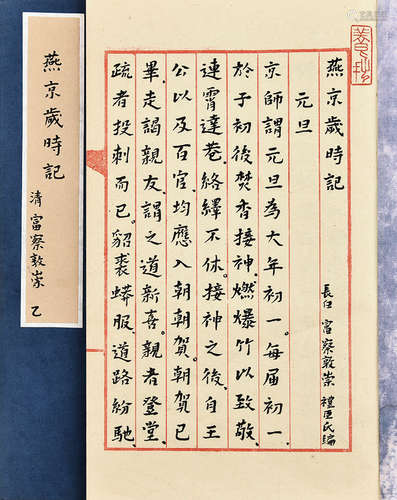 燕京歲時記
長白 富察敦崇 禮臣氏編
元旦
京師謂元旦為大年初一。每屆初一
於子初後焚香接神。燃爆竹以致敬。
連霄達巷。絡繹不休。接神之後。自王
公以及百官。均應入朝朝賀。朝賀已
畢。走謁親友。謂之道新喜。親者登堂。
疏者投刺而已。貂裘蟒服。道路紛馳。
燕京歲時記
清 富察敦崇 乙